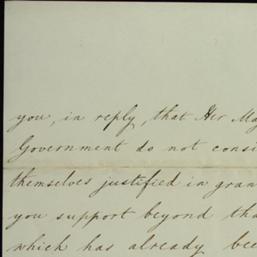 you, in reply, that Her Ma
Government do not consi
themselves justified in gran
you support beyond tha
which has already bee